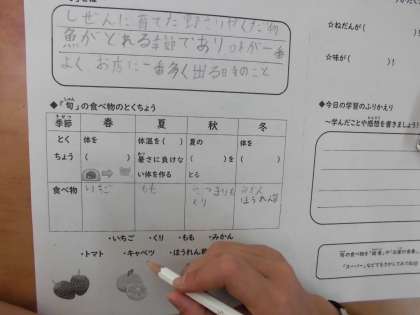 しぜんに育てた野さいやくだ物
魚がとれる季節であり 味が一番
よく お店に一番多く出る日のこと
☆ねだんが(
)!
☆味が(
)!
◆「旬」の食べ物のとくちょう
季節 春 夏 秋 冬
とくちょう
体を
( )
体温を( )
暑さに負けな
い体を作る
夏の
( )を
とる
体を
( )
食べ物 いちご もも さつまいも くり みかん ほうれん草
・いちご ・くり ・もも ・みかん
・トマト ・キャベツ ・ほうれん草
◆今日の学習のふりかえり
～学んだことや感想を書きましょう